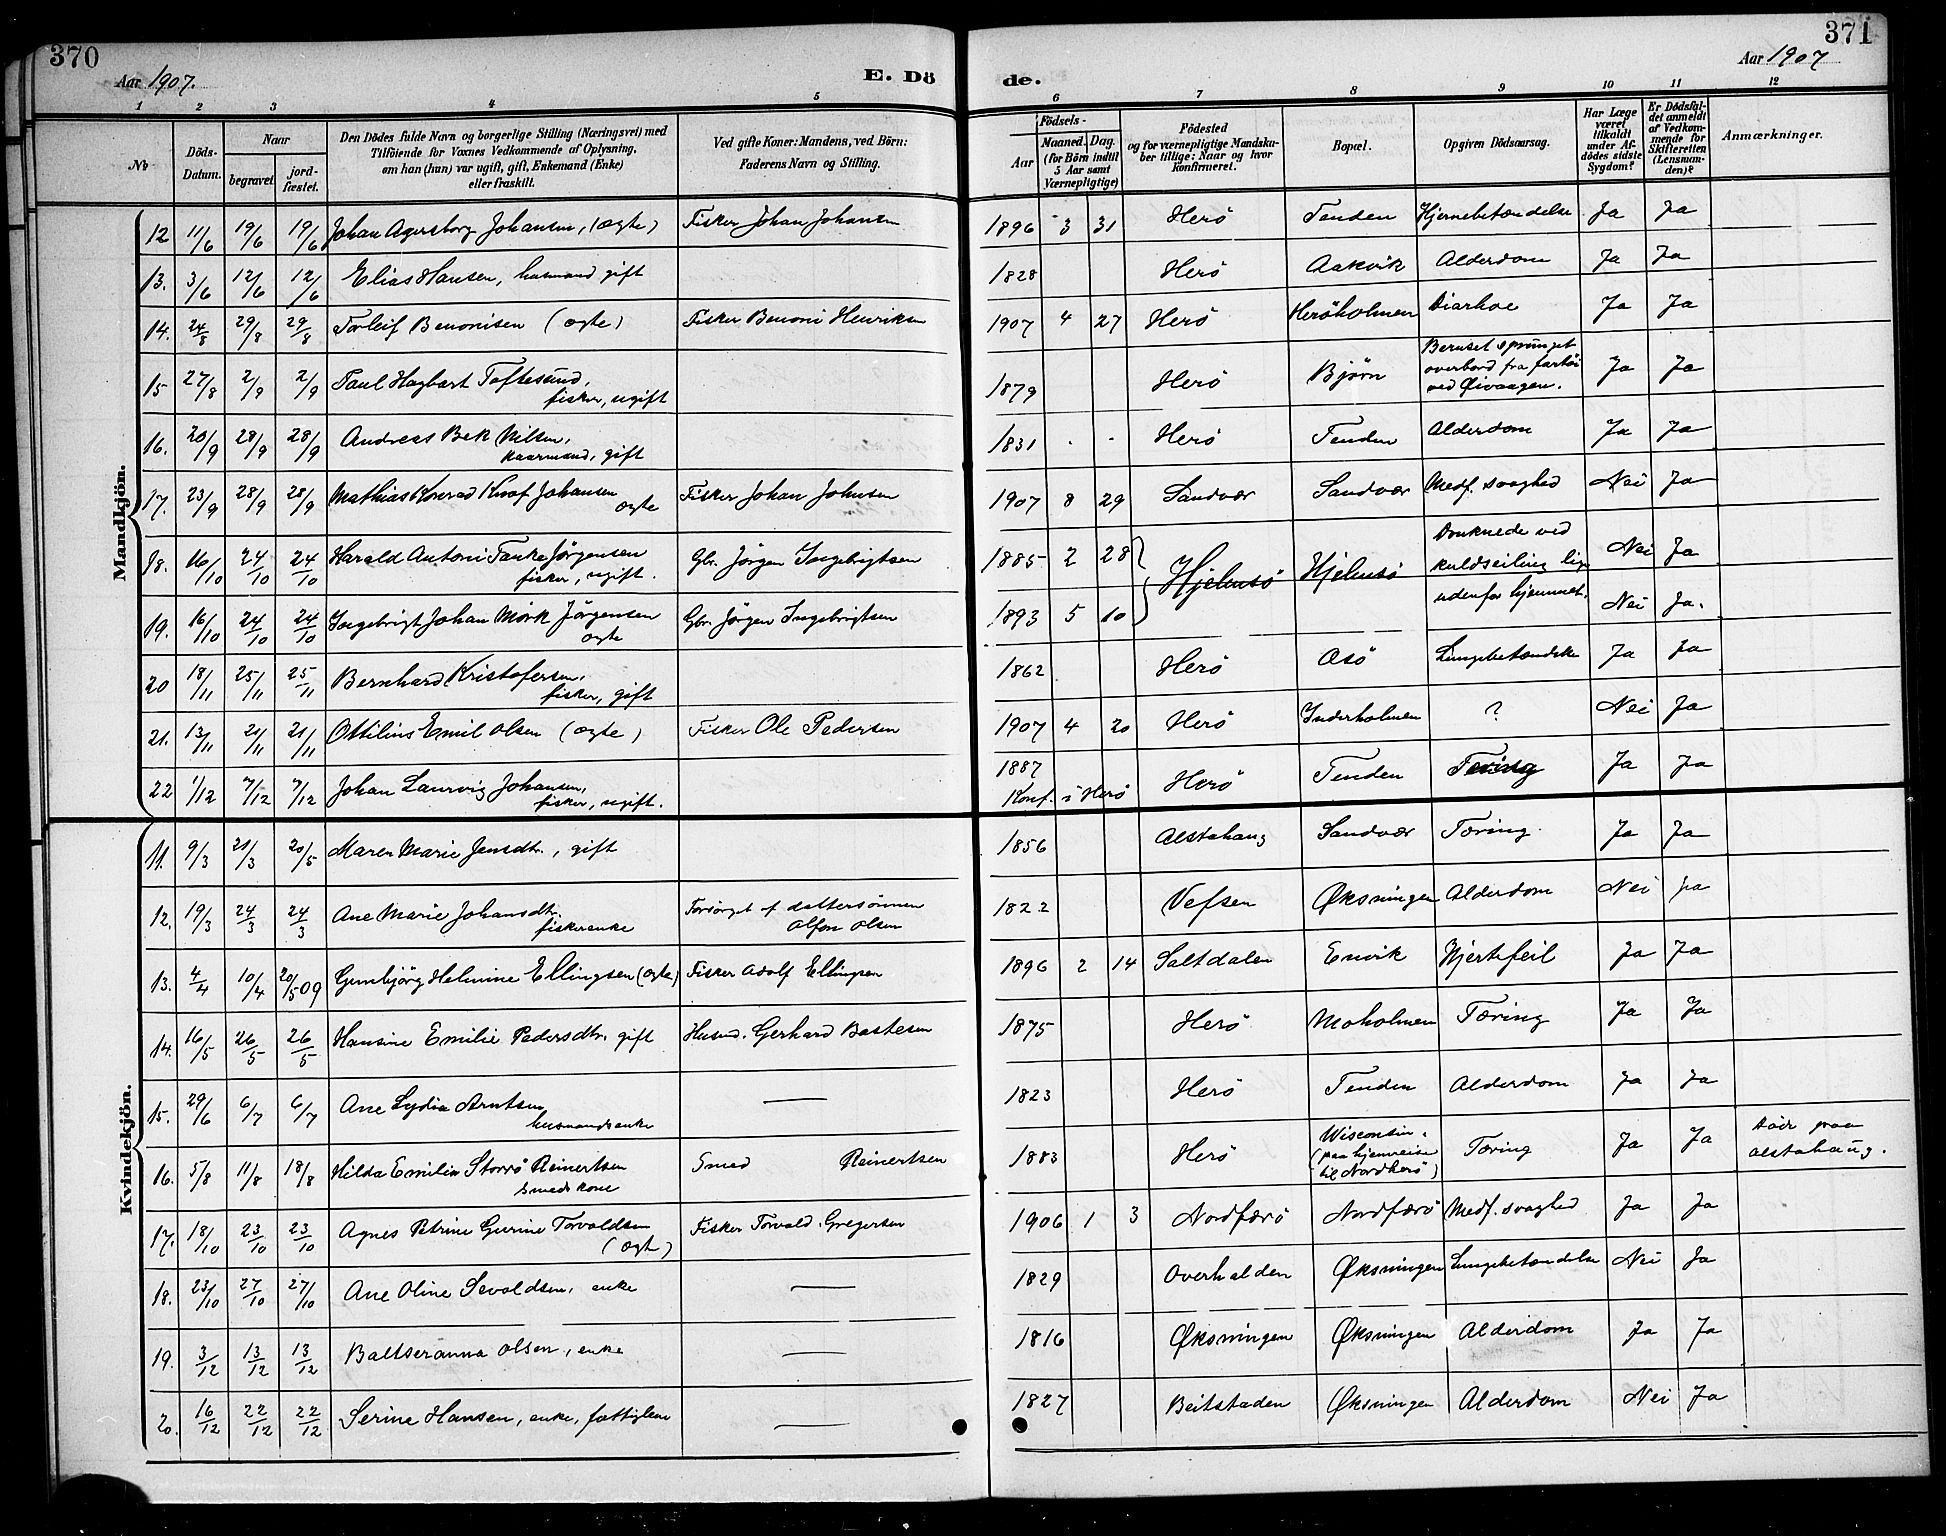 370
371
Aar 1907.
E. Dö
de.
Aar 1907
1 2 3 4 5 6 7 8 9 10 11 12
No
Döds-
Datum.
Naar
begravet.
jord-
fæstet.
Den Dödes fulde Navn og borgerlige Stilling (Næringsvei) med
Tilföiende for Voxnes Vedkommende af Oplysning,
om han (hun) var ugift, gift, Enkemand (Enke)
eller fraskilt.
Ved gifte Koner: Mandens, ved Börn:
Faderens Navn og Stilling.
Födsels-
Aar
Maaned. Dag.
(for Börn indtil
5 Aar samt
Værnepligtige)
Födested
og for værnepligtige Mandska-
ber tillige: Naar og hvor
konfirmeret.
Bopæl.
Opgiven Dödsaarsag.
Har Læge
været
tilkaldt
under Af-
dödes sidste
Sygdom?
Er Dödsfal-
det anmeldt
af Vedkom-
mende for
Skifteretten
(Lensman-
den)?
Anmærkninger.
Mandkjön.
12 11/6 19/6 19/6 Johan Agersborg Johansen, (ægte) Fisker Johan Johansen 1896 3 31 Herö Tenden Hjernebetændelse Ja Ja
13. 3/6 12/6 12/6 Elias Hansen, husmand gift 1828 Herö Aakvik Alderdom Ja Ja
14. 24/8 29/8 29/8 Torleif Benonisen (ægte) Fisker Benoni Henriksen 1907 4 27 Herö Heröholmen Diarhoe Ja Ja
15 27/8 2/9 2/9 Paul Hagbart Toftesund,
fisker, ugift 1879 Herö Bjørn Beruset sprunget
overbord fra fartöi
ved Øivaagen. Ja Ja
16. 20/9 28/9 28/9 Andreas Bek Nilsen,
kaarmand, gift 1831 - - Herö Tenden Alderdom Ja Ja
17. 23/9 28/9 28/9 Mathias Konrad Knof Johansen
ægte Fisker Johan Johnsen 1907 8 29 Sandvær Sandvær Medf. svaghed Nei Ja
18. 16/10 24/10 24/10 Harald Antoni Tanke Jørgensen
fisker, ugift. Gbr. Jørgen Ingebrigtsen 1885 2 28 Hjelmsö Hjelmsö Druknede ved
kuldseiling lige
udenfor hjemmet. Nei Ja
19. 16/10 24/10 24/10 Ingebrigt Johan Mörk Jörgensen
ægte Gbr. Jörgen Ingebrigtsen 1893 5 10 Nei Ja.
20 18/11 25/11 25/11 Bernhard Kristofersen,
fisker, gift 1862 Herö Asö Lungebetændelse Ja Ja
21. 13/11 21/11 21/11 Ottilius Emil Olsen (ægte) Fisker Ole Pedersen 1907 4 20 Herö Inderholmen ? Nei Ja
22 1/12 7/12 7/12 Johan Laurvig Johansen,
fisker, ugift. 1887
Konf. i Herö Herö Tenden Tæring Ja Ja
Kvindekjön.
11. 9/3 21/3 20/5 Maren Marie Jensdtr., gift 1856 Alstahaug Sandvær Tæring. Ja Ja
12. 19/3 24/3 24/3 Ane Marie Johansdtr.
fiskerenke Forsörget af dattersönnen
Alfon Olsen 1822 Vefsen Øksningen Alderdom Nei Ja
13. 4/4 10/4 20/5 09 Gunbjörg Helmine Ellingsen (ægte) Fisker Adolf Ellingsen 1896 2 14 Saltdalen Envik Hjertefeil Ja Ja
14. 16/5 26/5 26/5 Hansine Emilie Pedersdtr. gift Husmd. Gerhard Bastesen 1875 Herö Moholmen Tæring Ja Ja
15. 29/6 6/7 6/7 Ane Lydia Arntsen
husmandsenke — 1823 Herö Tenden Alderdom Ja Ja
16. 5/8 11/8 18/8 Hilda Emilie Storrö Reinertsen
smeds kone Smed Reinertsen 1883 Herö Wisconsin.
(paa hjemreise
til Nordherö) Tæring Ja Ja Död paa
Alstahaug.
17. 18/10 23/10 23/10 Agnes Petrine Gurine Torvaldsen
(ægte) Fisker Torvald Gregersen 1906 1 3 Nordfærö Nordfærö Medf. svaghed Ja Ja
18. 23/10 27/10 27/10 Ane Oline Sevaldsen, enke — 1829 Overhalden Øksningen Lungebetændelse Nei Ja
19. 3/12 13/12 13/12 Baltseranna Olsen, enke — 1816 Øksningen Øksningen Alderdom Ja Ja
20. 16/12 22/12 22/12 Serine Hansen, enke, fattiglem — 1827 Beitstaden Øksningen Alderdom Nei Ja